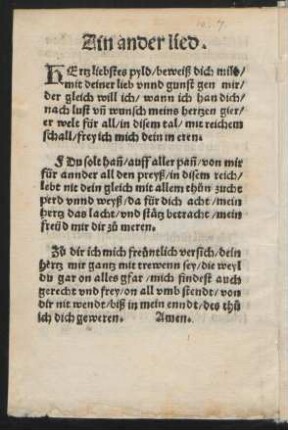 Ain ander lied.
HErtz liebstes pyld/beweiß dich mild/
mit deiner lieb vnnd gunst gen mir/
der gleich will ich/wann ich han dich/
nach lust vñ wunsch meins hertzen gier/
er welt für all/in disem tal/mit reichem
schall/frey ich mich dein in eren.
Du solt hañ/auff aller pañ/von mir
für annder all den preyß/in disem reich/
lebt nit dein gleich mit allem thün zucht
perd vnnd weyß/da für dich acht/mein
hertz das lacht/vnd stätz betracht/mein
freüd mir dir zü meren.
Zü dir ich mich freüntlich versich/dein
hertz mir gantz mit trewenn sey/die weyl
du gar on alles gfar/mich findest auch
gerecht vnd frey/on all vmb stendt/von
dir nit wendt/biß in mein enndt/des thü
ich dich geweren. Amen.